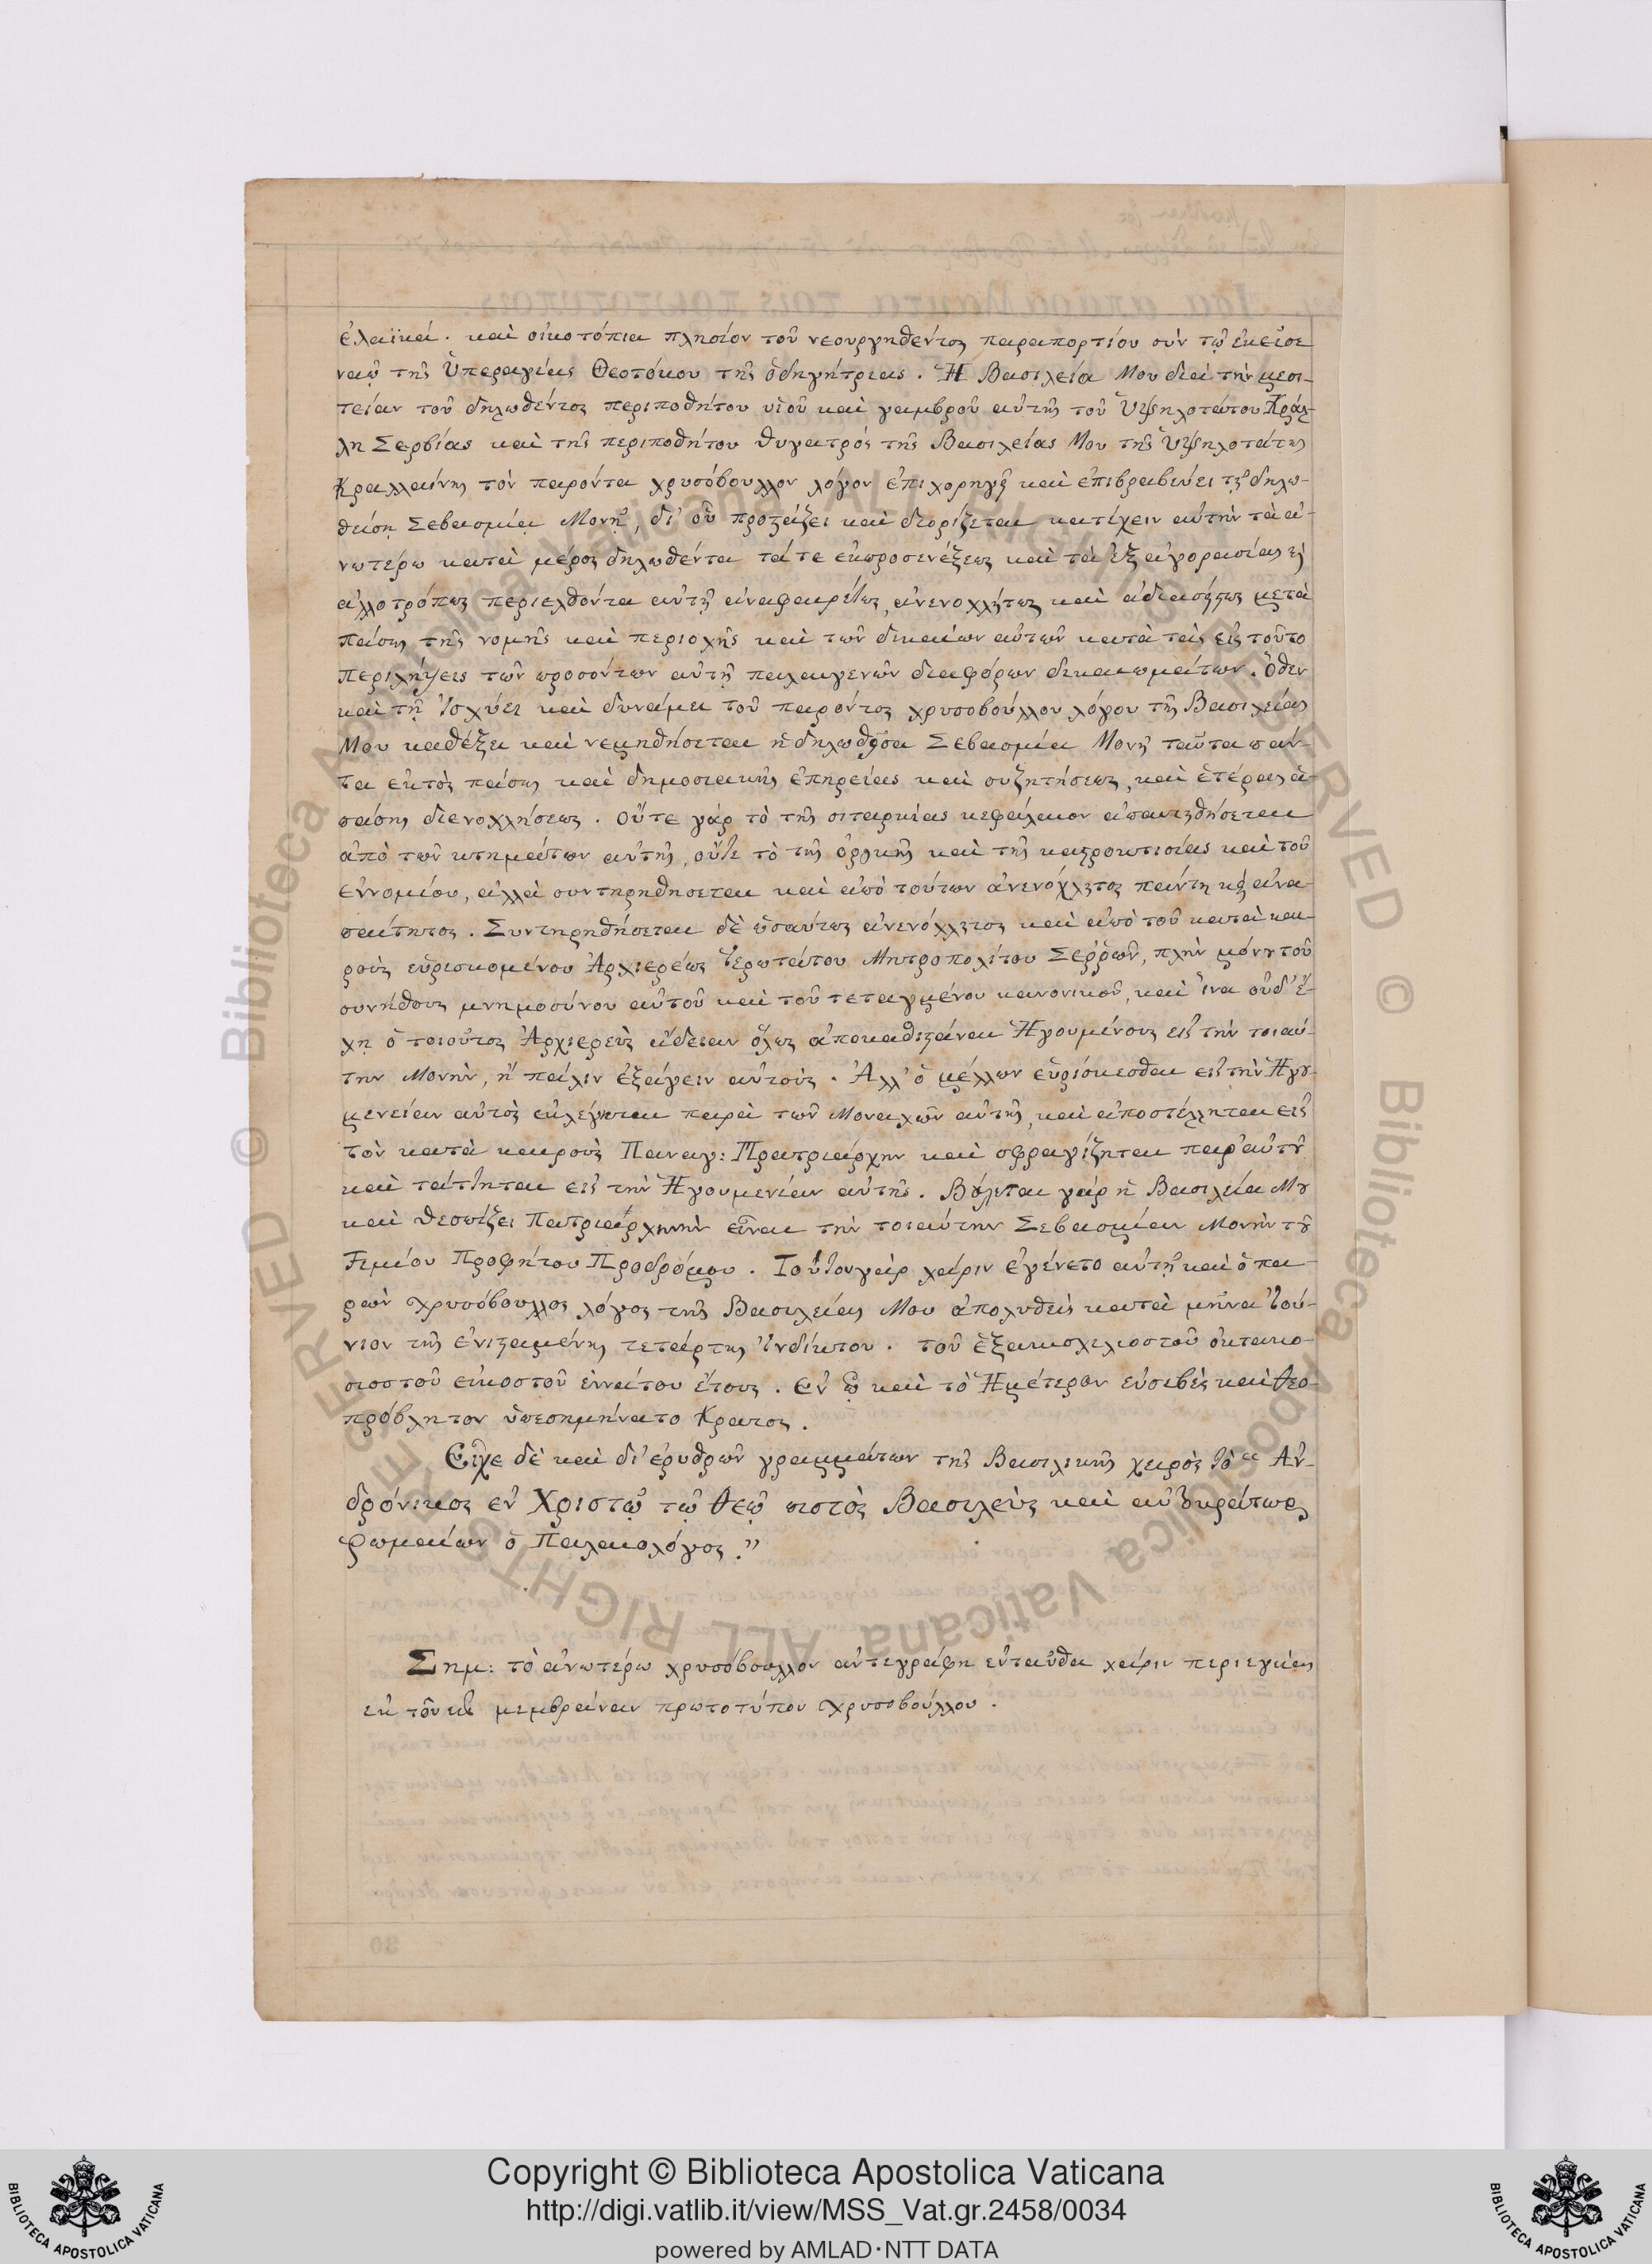 ἐλαϊκά. καὶ οἰκοτόπια πλησίον τοῦ νεουργηθέντος παραπορτίου σὺν τῷ ἐκεῖσε
ναῷ τῆς Ὑπεραγίας Θεοτόκου τῆς ὁδηγήτριας. Ἡ Βασιλεία Μου διὰ τὴν μεσι-
τείαν τοῦ δηλωθέντος περιποθήτου υἱοῦ καὶ γαμβροῦ αὐτῆς τοῦ Ὑψηλοτάτου Κρά-
λη Σερβίας καὶ τῆς περιποθήτου θυγατρός τῆς Βασιλείας Μου τῆς Ὑψηλοτάτης
Κραλλαίνης τὸν παρόντα χρυσόβουλλον λόγον ἐπιχορηγεῖ καὶ ἐπιβραβεύει τῇ δηλω-
θείσῃ Σεβασμίᾳ Μονῇ, δι' οὗ προστάζει καὶ διορίζεται κατέχειν αὐτὴν τὰ ἀ-
νωτέρω κατὰ μέρος δηλωθέντα τά τε ἐκ προσενέξεως καὶ τὰ ἐξ ἀγορασίας ἢ
ἀλλοτρόπως περιελθόντα αὐτῇ ἀναφαιρέτως, ἀνενοχλήτως καὶ ἀδιασείστως μετὰ
πάσης τῆς νομῆς καὶ περιοχῆς καὶ τῶν δικαίων αὐτῶν κατὰ τὰς εἰς τοῦτο
περιλήψεις τῶν προσόντων αὐτῇ παλαιγενῶν διαφόρων δικαιωμάτων. Ὅθεν
καὶ τῇ Ἰσχύει καὶ δυνάμει τοῦ παρόντος χρυσοβούλλου λόγου τῆς Βασιλείας
Μου καθέξει καὶ νεμηθήσεται ἡ δηλωθεῖσα Σεβασμία Μονὴ ταῦτα πάν-
τα ἐκτὸς πάσης καὶ δημοσιακῆς ἐπηρείας καὶ συζητήσεως, καὶ ἑτέρας ἁ-
πάσης διενοχλήσεως. Οὔτε γάρ τὸ τῆς σιταρκίας κεφάλαιον ἀπαιτηθήσεται
ἀπὸ τῶν κτημάτων αὐτῆς, οὔτε τὸ τῆς ὀρικῆς καὶ τῆς καστροκτισίας καὶ τοῦ
ἐννομίου, ἀλλὰ συντηρηθησεται καὶ ἀπὸ τούτων ἀνενόχλητος πάντη καὶ ἀνα-
παίτητος. Συντηρηθήσεται δὲ ὡσαύτως ἀνενόχλητος καὶ ἀπὸ τοῦ κατὰ και-
ροὺς εὑρισκομένου Ἀρχιερέως Ἱερωτάτου Μητροπολίτου Σερρῶν, πλὴν μόνου τοῦ
συνήθους μνημοσύνου αὐτοῦ καὶ τοῦ τεταγμένου κανονικοῦ, καὶ ἵνα οὐδ' ἔ-
χῃ ὁ τοιοῦτος Ἀρχιερεὺς ἄδειαν ὅλως ἀποκαθιστάναι Ἡγουμένους εἰς τὴν τοιαύ-
την Μονὴν, ἢ πάλιν ἐξάγειν αὐτοὺς. Ἀλλ' ὁ μέλλων εὑρίσκεσθαι εἰς τὴν Ἡγου-
μενείαν αὐτὸς ἐκλέγηται παρὰ τῶν Μοναχῶν αὐτῆς, καὶ ἀποστέλληται εἰς
τὸν κατὰ καιροὺς Παναγ: Πρατριάρχην καὶ σφραγίζηται παρ' αὐτοῦ
καὶ τάττηται εἰς τὴν Ἡγουμενίαν αὐτῆς. Βούλεται γάρ ἡ Βασιλεία Μου
καὶ θεσπίζει Πατριαρχικὴν εἶναι τὴν τοιαύτην Σεβασμίαν Μονὴν τοῦ
Τιμίου Προφήτου Προδρόμου. Τούτου γάρ χάριν ἐγένετο αὐτῇ καὶ ὁ πα-
ρὼν Χρυσόβουλλος λόγος τῆς Βασιλείας Μου ἀπολυθεὶς κατὰ μῆνα Ἰού-
νιον τῆς ἐνισταμένης τετάρτης Ἰνδίκτου. τοῦ ἑξακισχιλιοστοῦ ὀκτακο-
σιοστοῦ εἰκοστοῦ ἐννάτου ἔτους. Ἐν ᾧ καὶ τὸ Ἡμέτερον εὐσεβὲς καὶ Θεο-
πρόβλητον ὑπεσημήνατο Κρατος.
Εἶχε δὲ καὶ δι' ἐρυθρῶν γραμμάτων τῆς Βασιλικῆς χειρὸς τὸ “Ἀν-
δρόνικος ἐν Χριστῷ τῷ Θεῷ πιστὸς Βασιλεὺς καὶ αὐτοκράτωρ
Ῥωμαίων ὁ Παλαιολόγος.”
Σημ: τὸ ἀνωτέρω χρυσόβουλλον ἀντεγράφη ἐνταῦθα χάριν περιεγείας
ἐκ τοῦ μεμβράναν πρωτοτύπου Χρυσοβούλλου.
Copyright © Biblioteca Apostolica Vaticana
http://digi.vatlib.it/view/MSS_Vat.gr.2458/0034
powered by AMLAD·NTT DATA